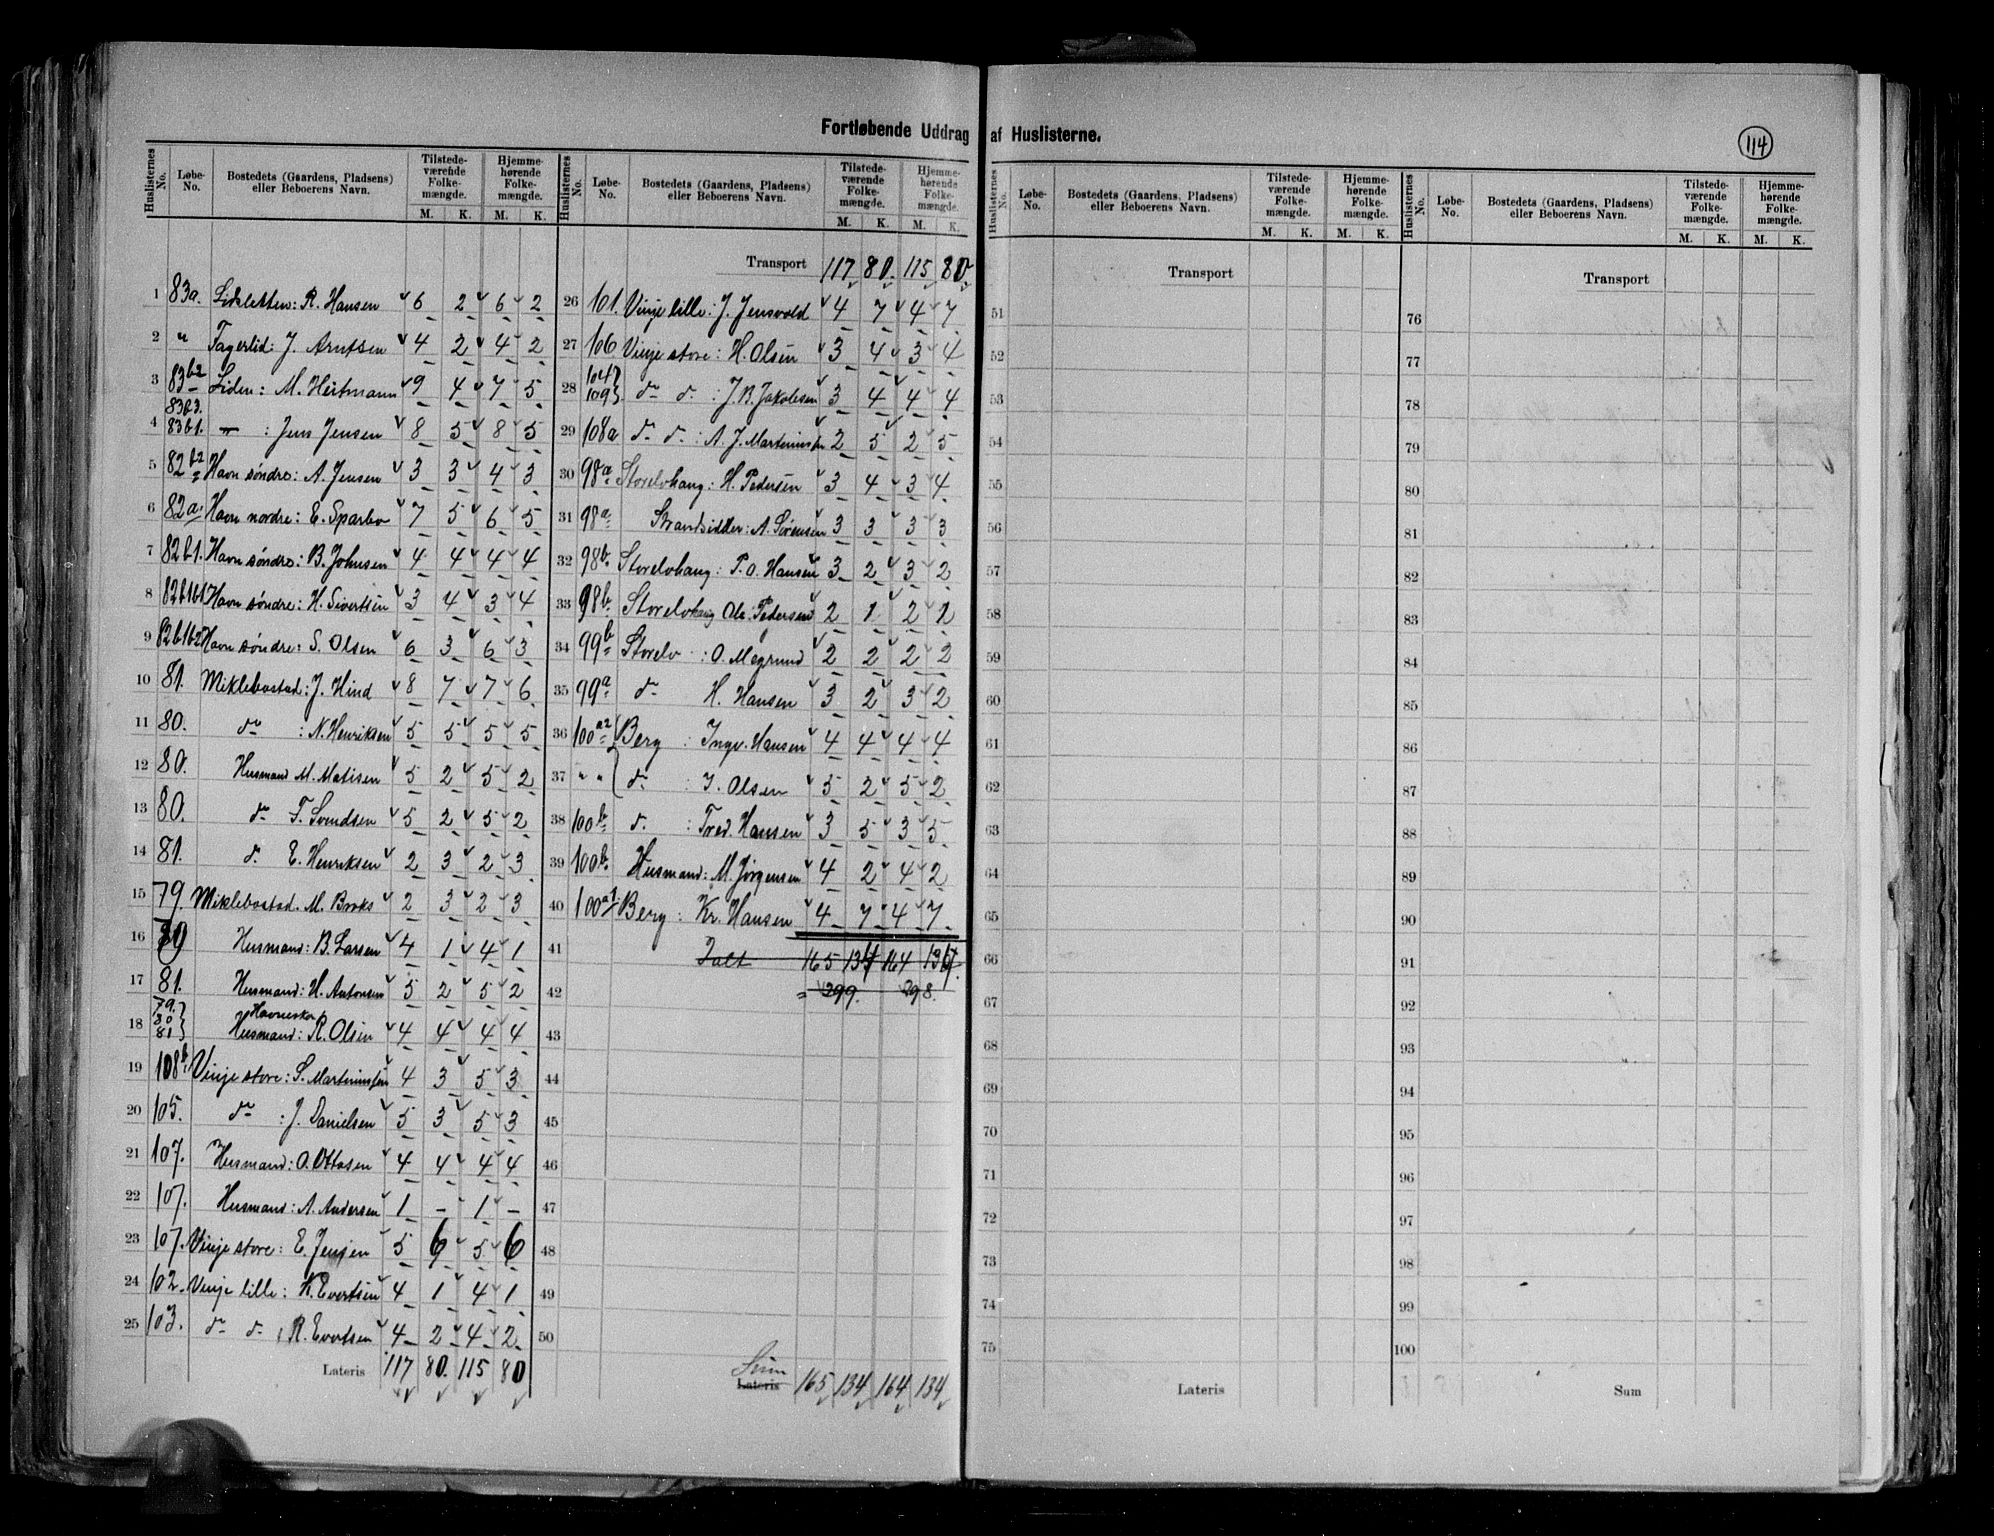 Fortløbende Uddrag af Huslisterne.
114
Huslisternes No. Løbe-No. Bostedets (Gaardens, Pladsens) eller Beboerens Navn. Tilstedeværende Folkemængde. M. K. Hjemmehørende Folkemængde. M. K.
1 83a. Lidsletten: R. Hansen 6 2 6 2
2 " Fagerlid: J. Arntsen 4 2 4 2
3 83b2 Liden: M. Heitmann 9 4 7 5
4 83b3. 83b1. — : Jens Jensen 8 5 8 5
5 82b2 Havn søndre: A. Jensen 3 3 4 3
6 82a. Havn nordre: E. Sparbo 7 5 6 5
7 82b1. Havn søndre: B. Johnsen 4 4 4 4
8 82b1b1 Havn søndre: H. Sivertsen 3 4 3 4
9 82b1b2 Havn søndre: S. Olsen 6 3 6 3
10 81. Miklebostad: J. Hind 8 7 7 6
11 80. do : N. Henriksen 5 5 5 5
12 80. Husmand M. Matisen 5 2 5 2
13 80. do F. Svendsen 5 2 5 2
14 81. do E. Henriksen 2 3 2 3
15 79. Miklebostad. M. Broks 2 3 2 3
16 79 Husmand: B. Larsen 4 1 4 1
17 81. Husmand: H. Antonsen 5 2 5 2
18 79. 80 81 Husmand: R. Olsen 4 4 4 4
19 108b Vinje store: S. Martinussen 4 3 5 3
20 105. do : J. Danielsen 5 3 5 3
21 107. Husmand: O. Ottosen 4 4 4 4
22 107. Husmand: A. Andersen 1 - 1 -
23 107. Vinje store: E. Jensen 5 6 5 6
24 102. Vinje lille: K. Evertsen 4 1 4 1
25 103. do do : R. Evertsen 4 2 4 2
Lateris 117 80. 115 80
Huslisternes No. Løbe-No. Bostedets (Gaardens, Pladsens) eller Beboerens Navn. Tilstedeværende Folkemængde. M. K. Hjemmehørende Folkemængde. M. K.
Transport 117 80. 115 80
26 101. Vinje lille: J. Jensvold 4 7 4 7
27 106 Vinje store: H. Olsen 3 4 3 4
28 104 109 do do : J. B. Jakobsen 3 4 4 4
29 108a do do : A. J. Martinussen 2 5 2 5
30 98a Storelvhaug: H. Pedersen 3 4 3 4
31 98a Strandsidder: A. Sørensen 3 3 3 3
32 98b. Storelvhaug: P. O. Hansen 3 2 3 2
33 98b. Storelvhaug Ole Pedersen 2 1 2 1
34 99b Storelv : O. Megrund 2 2 2 2
35 99a do H. Hansen 3 2 3 2
36 100a2 Berg : Ingv. Hansen 4 4 4 4
37 " " do : J. Olsen 5 2 5 2
38 100b do : Fred. Hansen 3 5 3 5
39 100b. Husmand: M. Jørgensen 4 2 4 2
40 100a1 Berg : Kr. Hansen 4 7 4 7
41 Ialt 165 134 164 134
42 = 299. 298.
43
44
45
46
47
48
49
50
Sum Lateris 165 134 164 134
Huslisternes No. Løbe-No. Bostedets (Gaardens, Pladsens) eller Beboerens Navn. Tilstedeværende Folkemængde. M. K. Hjemmehørende Folkemængde. M. K.
Transport
51
52
53
54
55
56
57
58
59
60
61
62
63
64
65
66
67
68
69
70
71
72
73
74
75
Lateris
Huslisternes No. Løbe-No. Bostedets (Gaardens, Pladsens) eller Beboerens Navn. Tilstedeværende Folkemængde. M. K. Hjemmehørende Folkemængde. M. K.
Transport
76
77
78
79
80
81
82
83
84
85
86
87
88
89
90
91
92
93
94
95
96
97
98
99
100
Sum